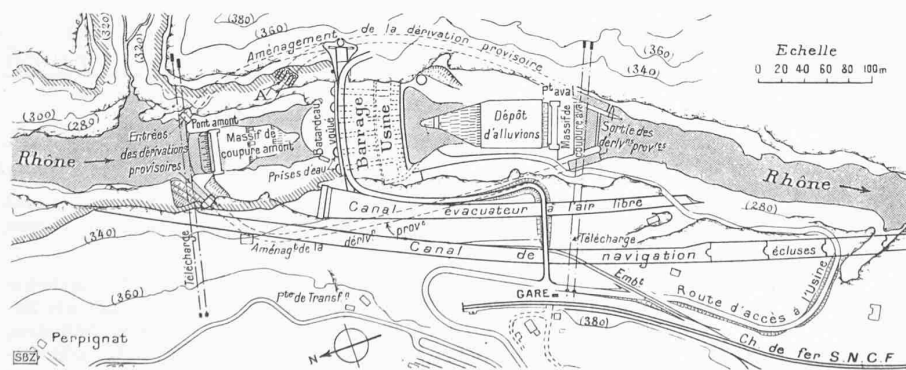 (320)
(320)
(380)
(360)
Aménagement de la dérivation provisoire
(360)
(340)
Echelle
0 20 40 60 80 100 m
(300)
(280)
A
Pont amont
Entrées
des dérivations
provisoires
Massif de
coupure amont
Batardeau
voûte
Barrage
Usine
Dépôt
d'alluvions
pt aval
Massif de
coupure aval
Sortie des
dérivns provtes
Rhône
Rhône
Prises d'eau
Canal évacuateur à l'air libre
(280)
(340)
Télécharge
Aménagt de la dérivn provre
Canal de navigation
Télécharge
écluses
(360)
pte de Transfn
GARE
Embt
Route d'accès à l'usine
(380)
Ch. de fer S.N.C.F
Perpignat
N
SBZ